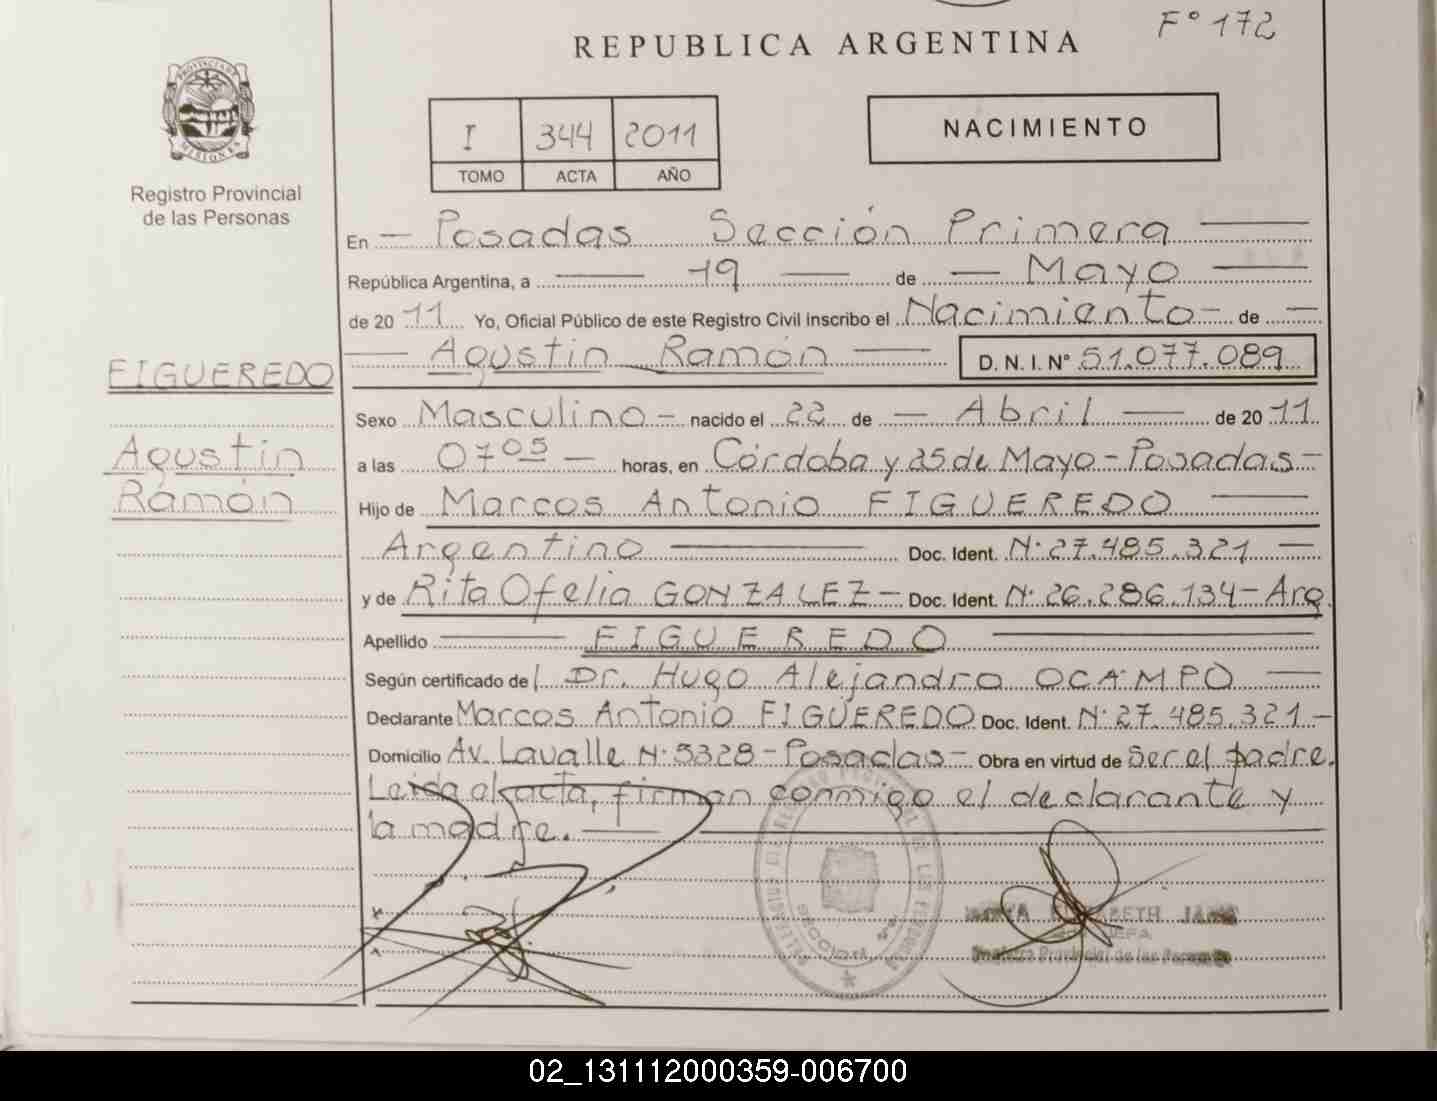 F° 172
REPUBLICA ARGENTINA
PROVINCIA DE
MISIONES
Registro Provincial
de las Personas
I 344 2011
TOMO ACTA AÑO
NACIMIENTO
En — Posadas Sección Primera —
República Argentina, a — 19 — de — Mayo —
de 2011 Yo, Oficial Público de este Registro Civil inscribo el Nacimiento — de —
— Agustin Ramón — D. N. I. N° 51.077.089
FIGUEREDO
Agustin
Ramón
Sexo Masculino — nacido el 22 de — Abril — de 2011
a las 07 05 — horas, en Córdoba y 25 de Mayo - Posadas -
Hijo de Marcos Antonio FIGUEREDO —
Argentino — Doc. Ident. N° 27.485.321 —
y de Rita Ofelia GONZALEZ — Doc. Ident. N° 26.286.134 - Arg.
Apellido — FIGUEREDO —
Según certificado del Dr. Hugo Alejandro OCAMPO —
Declarante Marcos Antonio FIGUEREDO Doc. Ident. N° 27.485.321 -
Domicilio Av. Lavalle N° 5328 - Posadas - Obra en virtud de Ser el padre.
Leida el acta, firman conmigo el declarante y
la madre. —
JEFA
Registro Provincial de las Personas
02_131112000359-006700